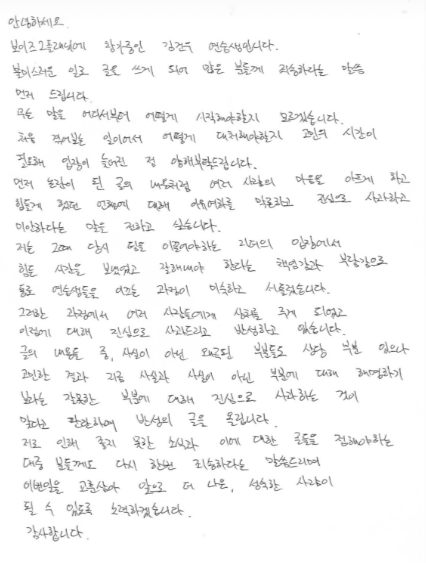 안녕하세요.
보이즈2플래닛에 참가중인 김건우 연습생입니다.
불미스러운 일로 글을 쓰게 되어 많은 분들께 죄송하다는 말씀
먼저 드립니다.
무슨 말을 어디서부터 어떻게 시작해야할지 모르겠습니다.
처음 겪어보는 일이어서 어떻게 대처해야할지 고민의 시간이
필요해 입장이 늦어진 점 양해부탁드립니다.
먼저 논란이 된 글의 내용처럼 여러 사람의 마음을 아프게 하고
힘들게 했던 언행에 대해 이유여하를 막론하고 진심으로 사과하고
미안하다는 말을 전하고 싶습니다.
저는 그때 당시 팀을 이끌어야하는 리더의 입장에서
힘든 시간을 보냈었고 잘해내야 한다는 책임감과 부담감으로
동료 연습생들을 이끄는 과정이 미숙하고 서툴렀습니다.
그러한 과정에서 여러 사람들에게 상처를 주게 되었고
이점에 대해 진심으로 사과드리고 반성하고 있습니다.
글의 내용들 중, 사실이 아닌 왜곡된 부분들도 상당 부분 있으나
고민한 결과 지금 사실과 사실이 아닌 부분에 대해 해명하기
보다는 잘못한 부분에 대해 진심으로 사과하는 것이
맞다고 판단하여 반성의 글을 올립니다.
저로 인해 좋지 못한 소식과 이에 대한 글들을 접해야하는
대중 분들께도 다시 한번 죄송하다는 말씀드리며
이번일을 교훈삼아 앞으로 더 나은, 성숙한 사람이
될 수 있도록 노력하겠습니다.
감사합니다.